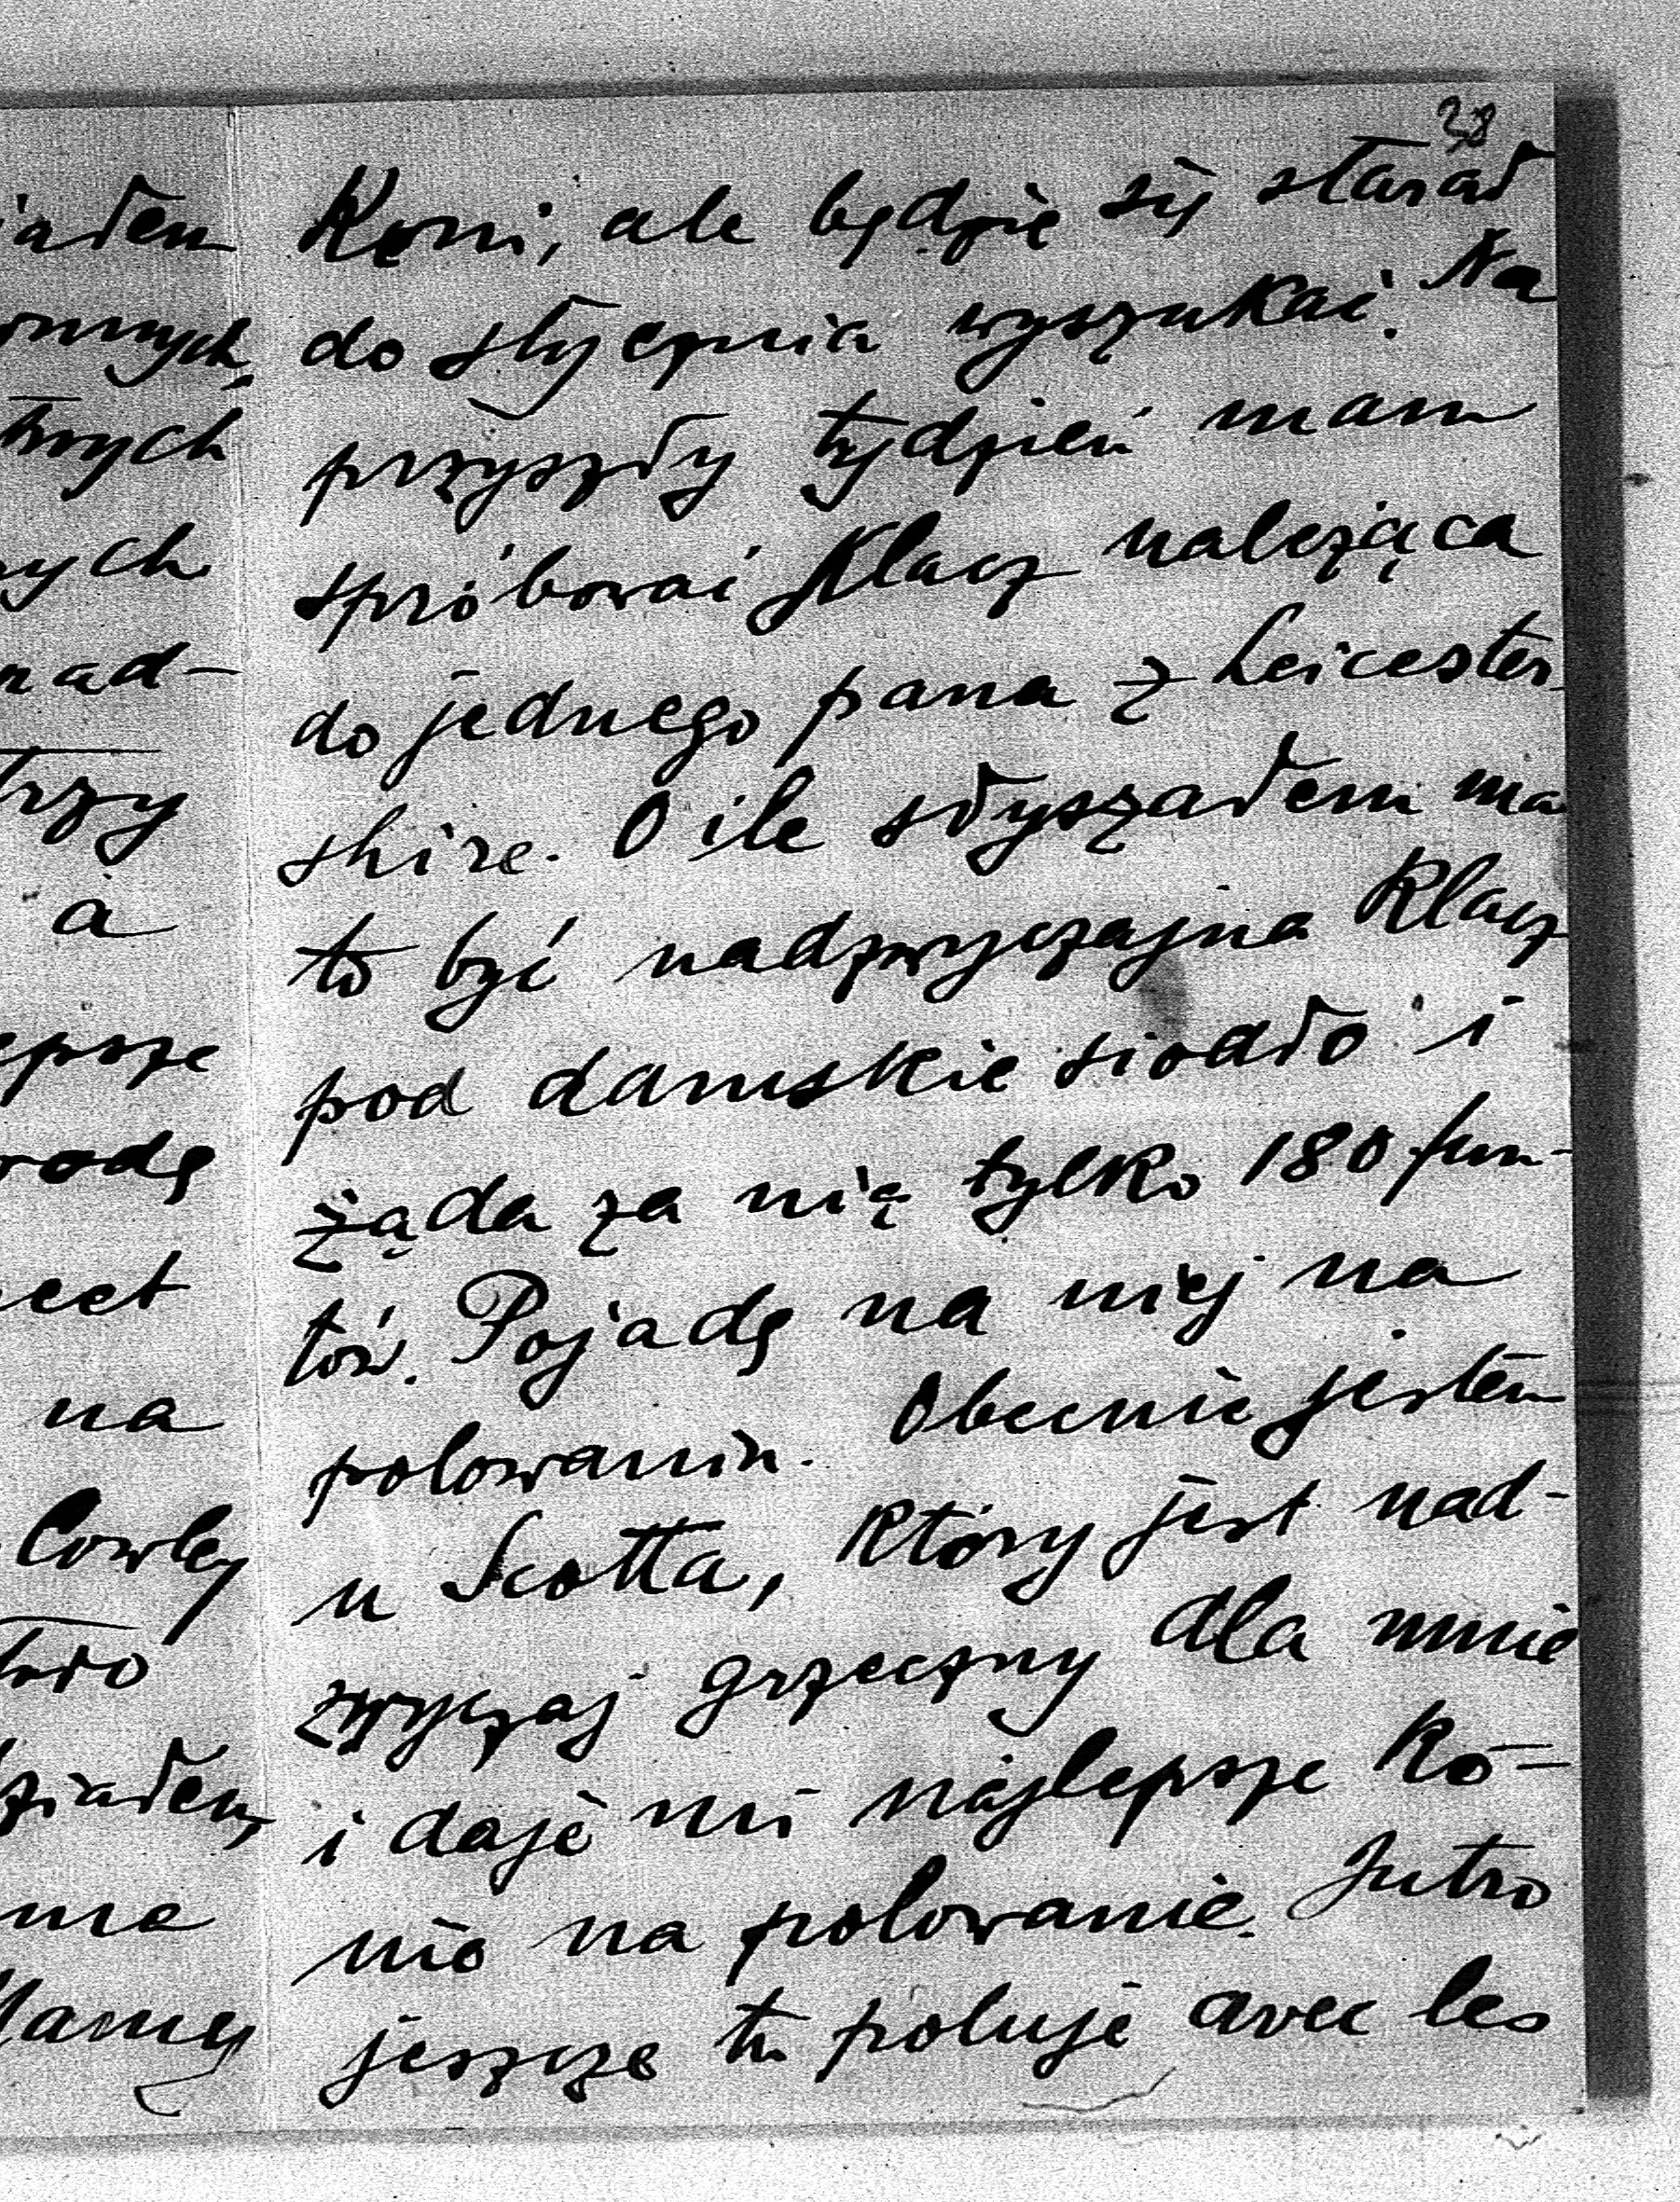 28
Koni, ale będzie się starał
do stycznia wyszukać. Na
przyszły tydzień mam
spróbować klacz należąca
do jednego pana z Leicester
shire. O ile słyszałem ma
to być nadzwyczajna klacz
pod damskie siodło i
żąda za nią tylko 180 fun-
tów. Pojadę na niej na
polowaniu. Obecnie jestem
u Scotta, który jest nad-
zwyczaj grzeczny dla mnie
i daje mi najlepsze ko-
nie na polowanie. Jutro
jeszcze tu poluję avec les